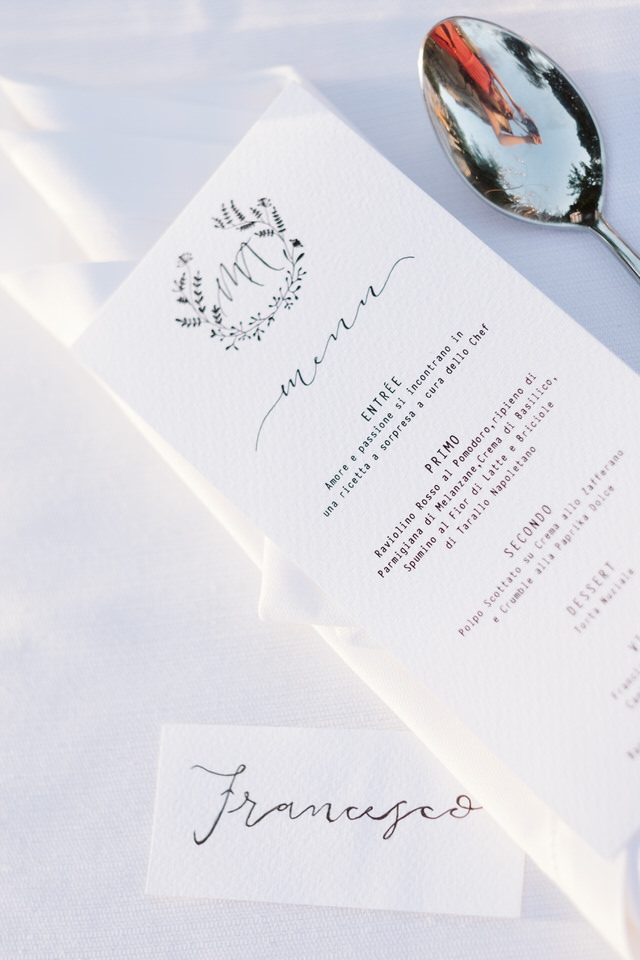 menu
ENTRÉE
Amore e passione si incontrano in
una ricetta a sorpresa a cura dello Chef
PRIMO
Raviolino Rosso al Pomodoro,ripieno di
Parmigiana di Melanzane,Crema di Basilico,
Spumino al Fior di Latte e Briciole
di Tarallo Napoletano
SECONDO
Polpo Scottato su Crema allo Zafferano
e Crumble alla Paprika Dolce
DESSERT
Torta Nuziale
Francesco